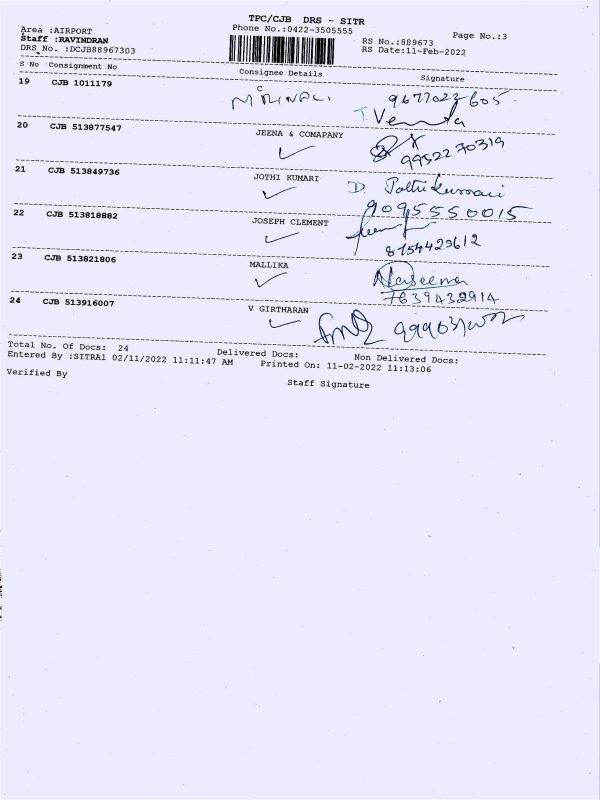 TPC/CJB DRS - SITR
Area :AIRPORT
Phone No.:0422-3505555
Page No.:3
Staff :RAVINDRAN
RS No.:889673
DRS No. :DCJB88967303
RS Date:11-Feb-2022
S No Consignment No Consignee Details Signature
19 CJB 1011179
9677022605
20 CJB 513877547 JEENA & COMAPANY
9952270319
21 CJB 513849736 JOTHI KUMARI
D. Jothi Kumari
9095550015
22 CJB 513818882 JOSEPH CLEMENT
8754429612
23 CJB 513821806 MALLIKA
Naseema
7639432914
24 CJB 513916007 V GIRTHARAN
Total No. Of Docs: 24 Delivered Docs: Non Delivered Docs:
Entered By :SITRA1 02/11/2022 11:11:47 AM Printed On: 11-02-2022 11:13:06
Verified By Staff Signature